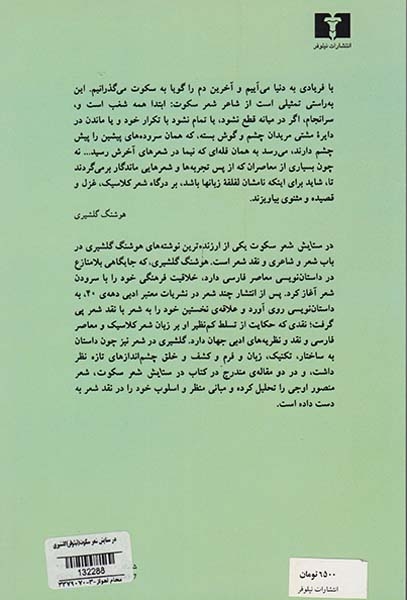 انتشارات نیلوفر
با فریادی به دنیا می‌آییم و آخرین دم را گویا به سکوت می‌گذرانیم. این
به‌راستی تمثیلی است از شاعر شعر سکوت: ابتدا همه شغب است و،
سرانجام، اگر در میانه قطع نشود، یا تمام نشود با تکرار خود و یا ماندن در
دایرهٔ مشتی مریدان چشم و گوش بسته، که همان سروده‌های پیشین را پیش
چشم دارند، می‌رسد به همان قله‌ای که نیما در شعرهای آخرش رسید... نه
چون بسیاری از معاصران که از پس تجربه‌ها و شعرهایی ماندگار برمی‌گردند
تا، شاید برای اینکه نامشان لقلقهٔ زبانها باشد، بر درگاه شعر کلاسیک، غزل و
قصیده و مثنوی بیاویزند.
هوشنگ گلشیری
در ستایش شعر سکوت یکی از ارزنده‌ترین نوشته‌های هوشنگ گلشیری در
باب شعر و شاعری و نقد شعر است. هوشنگ گلشیری، که جایگاهی بلامنازع
در داستان‌نویسی معاصر فارسی دارد، خلاقیت فرهنگی خود را با سرودن
شعر آغاز کرد. پس از انتشار چند شعر در نشریات معتبر ادبی دهه‌ی ۴۰، به
داستان‌نویسی روی آورد و علاقه‌ی نخستین خود را به شعر با نقد شعر پی
گرفت؛ نقدی که حکایت از تسلط کم‌نظیر او بر زبان شعر کلاسیک و معاصر
فارسی و نقد و نظریه‌های ادبی جهان دارد. گلشیری در شعر نیز چون داستان
به ساختار، تکنیک، زبان و فرم و کشف و خلق چشم‌اندازهای تازه نظر
داشت، و در دو مقاله‌ی مندرج در کتاب در ستایش شعر سکوت، شعر
منصور اوجی را تحلیل کرده و مبانی منظر و اسلوب خود را در نقد شعر به
دست داده است.
در ستایش شعر سکوت(نیلوفر)گلشیری
132288
۶۵۰۰ تومان
انتشارات نیلوفر